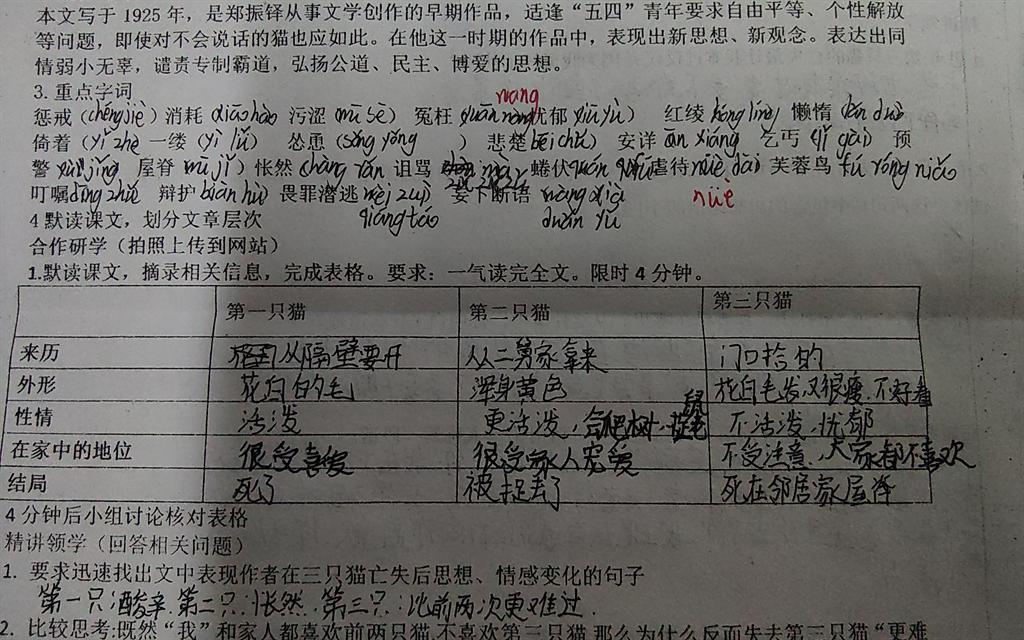 本文写于1925年，是郑振铎从事文学创作的早期作品，适逢“五四”青年要求自由平等、个性解放
等问题，即使对不会说话的猫也应如此。在他这一时期的作品中，表现出新思想、新观念。表达出同
情弱小无辜，谴责专制霸道，弘扬公道、民主、博爱的思想。
3. 重点字词
wang
惩戒（chéng jiè）消耗 xiāo hào 污涩（mū sè） 冤枉 yuān 忧郁 yōu yù） 红绫 hóng líng） 懒惰 lǎn duò
倚着（yǐ zhe 一缕（yì lǚ） 怂恿（sǒng yǒng ） 悲楚 bēi chǔ） 安详 ān xiáng 乞丐（qǐ gài） 预
警 yù jǐng 屋脊 mū jǐ）怅然 chàng rán 诅骂 蜷伏 quán fú 虐待 nüè dài） 芙蓉鸟 fú róng niǎo
叮嘱 dīng zhǔ 辩护 biàn hù）畏罪潜逃 wèi zuì 妄下断语 wàng xià nüè
4 默读课文，划分文章层次 qián táo duàn yǔ
合作研学（拍照上传到网站）
1.默读课文，摘录相关信息，完成表格。要求：一气读完全文。限时4分钟。
第一只猫 第二只猫 第三只猫
来历 从隔壁要来 从二舅家拿来 门口拾的
外形 花白的毛 浑身黄色 花白毛发又很瘦.不好看
性情 活泼 更活泼，会爬树 鼠 不活泼，忧郁
在家中的地位 很受喜爱 很受家人宠爱 不受注意，大家都不喜欢
结局 死了 被捉去了 死在邻居家屋脊
4分钟后小组讨论核对表格
精讲领学（回答相关问题）
1. 要求迅速找出文中表现作者在三只猫亡失后思想、情感变化的句子
第一只：酸辛.第二只：怅然.第三只：比前两次更难过.
2. 比较思考:既然“我”和家人都喜欢前两只猫,不喜欢第三只猫,那么为什么反而失去第三只猫“更难